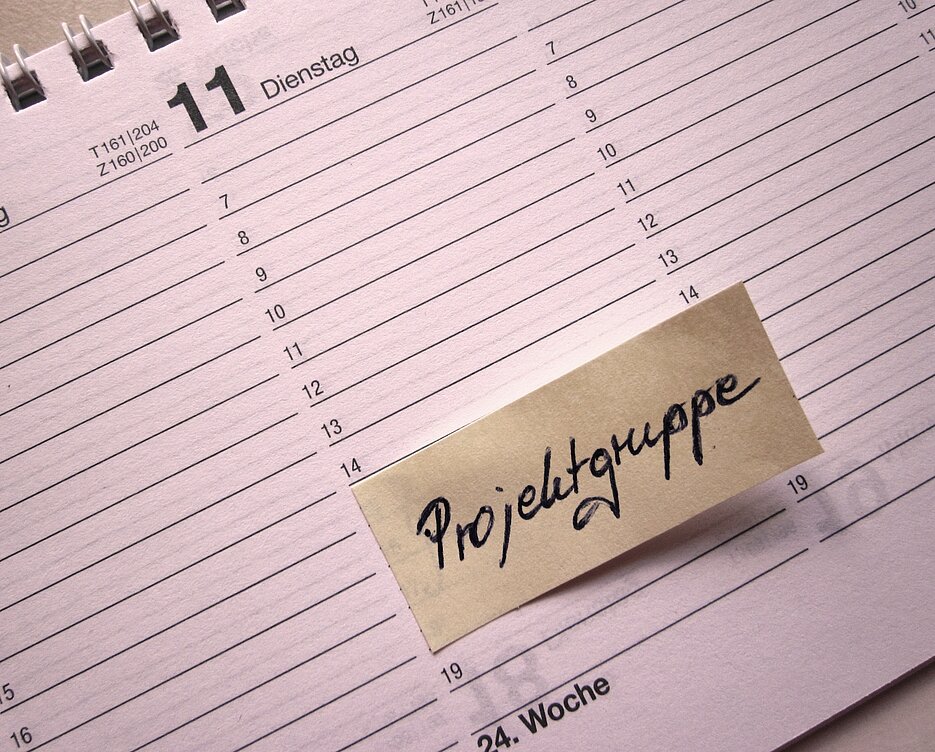 11 Dienstag
T161|204
Z160|200
g
Z161|1
7
8
9
10
11
12
13
14
19
7
8
9
10
11
12
13
14
19
10
11
15
16
Projektgruppe
24. Woche